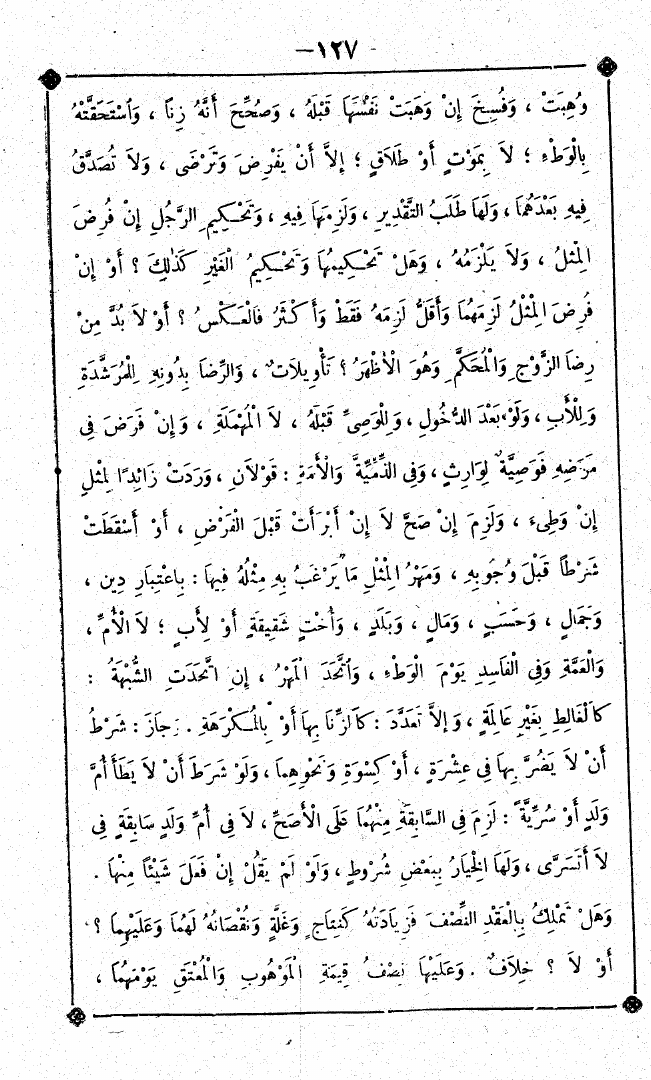 -١٢٧-
وُهِبَتْ ، وَفُسِخَ إِنْ وَهَبَتْ نَفْسَهَا قَبْلَهُ ، وَصُحِّحَ أَنَّهُ زِنًا ، وَاسْتَحَقَّتْهُ
بِالْوَطْءِ ؛ لاَ بِمَوْتٍ أَوْ طَلَاقٍ ؛ إِلاَّ أَنْ يَفْرِضَ وَتَرْضَى ، وَلاَ تُصَدَّقُ
فِيهِ بَعْدَهُمَا ، وَلَهَا طَلَبُ التَّقْدِيرِ ، وَلَزِمَهَا فِيهِ ، وَتَحْكِيمِ الرَّجُلِ إِنْ فُرِضَ
الْمِثْلُ ، وَلاَ يَلْزَمُهُ ، وَهَلْ تَحْكِيمُهَا وَتَحْكِيمُ الْغَيْرِ كَذَلِكَ ؟ أَوْ إِنْ
فُرِضَ الْمِثْلُ لَزِمَهُمَا وَأَقَلُّ لَزِمَهُ فَقَطْ وَأَكْثَرُ فَالْعَكْسُ ؟ أَوْ لاَ بُدَّ مِنْ
رِضَا الزَّوْجِ وَالْمُحَكَّمِ وَهُوَ الْأَظْهَرُ ؟ تَأْوِيلاَتٌ ، وَالرِّضَا بِدُونِهِ لِلْمُرَشَّدَةِ
وَلِلْأَبِ ، وَلَوْ بَعْدَ الدُّخُولِ ، وَلِلْوَصِيِّ قَبْلَهُ ، لاَ الْمُهْمَلَةِ ، وَإِنْ فَرَضَ فِى
مَرَضِهِ فَوَصِيَّةٌ لِوَارِثٍ ، وَفِى الذِّمِّيَّةِ وَالْأَمَةِ : قَوْلاَنِ ، وَرَدَّتْ زَائِدًا لِمِثْلِ
إِنْ وَطِىءَ ، وَلَزِمَ إِنْ صَحَّ لاَ إِنْ أَبْرَأَتْ قَبْلَ الْفَرْضِ ، أَوْ أَسْقَطَتْ
شَرْطًا قَبْلَ وُجُوبِهِ ، وَمَهْرُ الْمِثْلِ مَا يَرْغَبُ بِهِ مِثْلُهُ فِيهَا : بِاعْتِبَارِ دِينٍ ،
وَجَمَالٍ ، وَحَسَبٍ ، وَمَالٍ ، وَبَلَدٍ ، وَأُخْتٍ شَقِيقَةٍ أَوْ لِأَبٍ ؛ لاَ الْأُمِّ ،
وَالْعَمَّةِ وَفِى الْفَاسِدِ يَوْمَ الْوَطْءِ ، وَاتَّحَدَ الْمَهْرُ ، إِنِ اتَّحَدَتِ الشُّبْهَةُ :
كَالْغَالِطِ بِغَيْرِ عَالِمَةٍ ، وَإِلاَّ تَعَدَّدَ : كَالزِّنَا بِهَا أَوْ بِالْمُكْرَهَةِ . وَجَازَ : شَرْطُ
أَنْ لاَ يَضُرَّ بِهَا فِى عِشْرَةٍ ، أَوْ كِسْوَةٍ وَنَحْوِهِمَا ، وَلَوْ شَرَطَ أَنْ لاَ يَطَأَ أُمَّ
وَلَدٍ أَوْ سُرِّيَّةً : لَزِمَ فِى السَّابِقَةِ مِنْهُمَا عَلَى الْأَصَحِّ ، لاَ فِى أُمِّ وَلَدٍ سَابِقَةٍ فِى
لاَ أَتَسَرَّى ، وَلَهَا الْخِيَارُ بِبَعْضِ شُرُوطٍ ، وَلَوْ لَمْ يَقُلْ إِنْ فَعَلَ شَيْئًا مِنْهَا .
وَهَلْ تَمْلِكُ بِالْعَقْدِ النِّصْفَ فَزِيَادَتُهُ كَنِتَاجٍ وَغَلَّةٍ وَنُقْصَانُهُ لَهُمَا وَعَلَيْهِمَا ؟
أَوْ لاَ ؟ خِلاَفٌ . وَعَلَيْهَا نِصْفُ قِيمَةِ الْمَوْهُوبِ وَالْمُعْتَقِ يَوْمَهُمَا ،